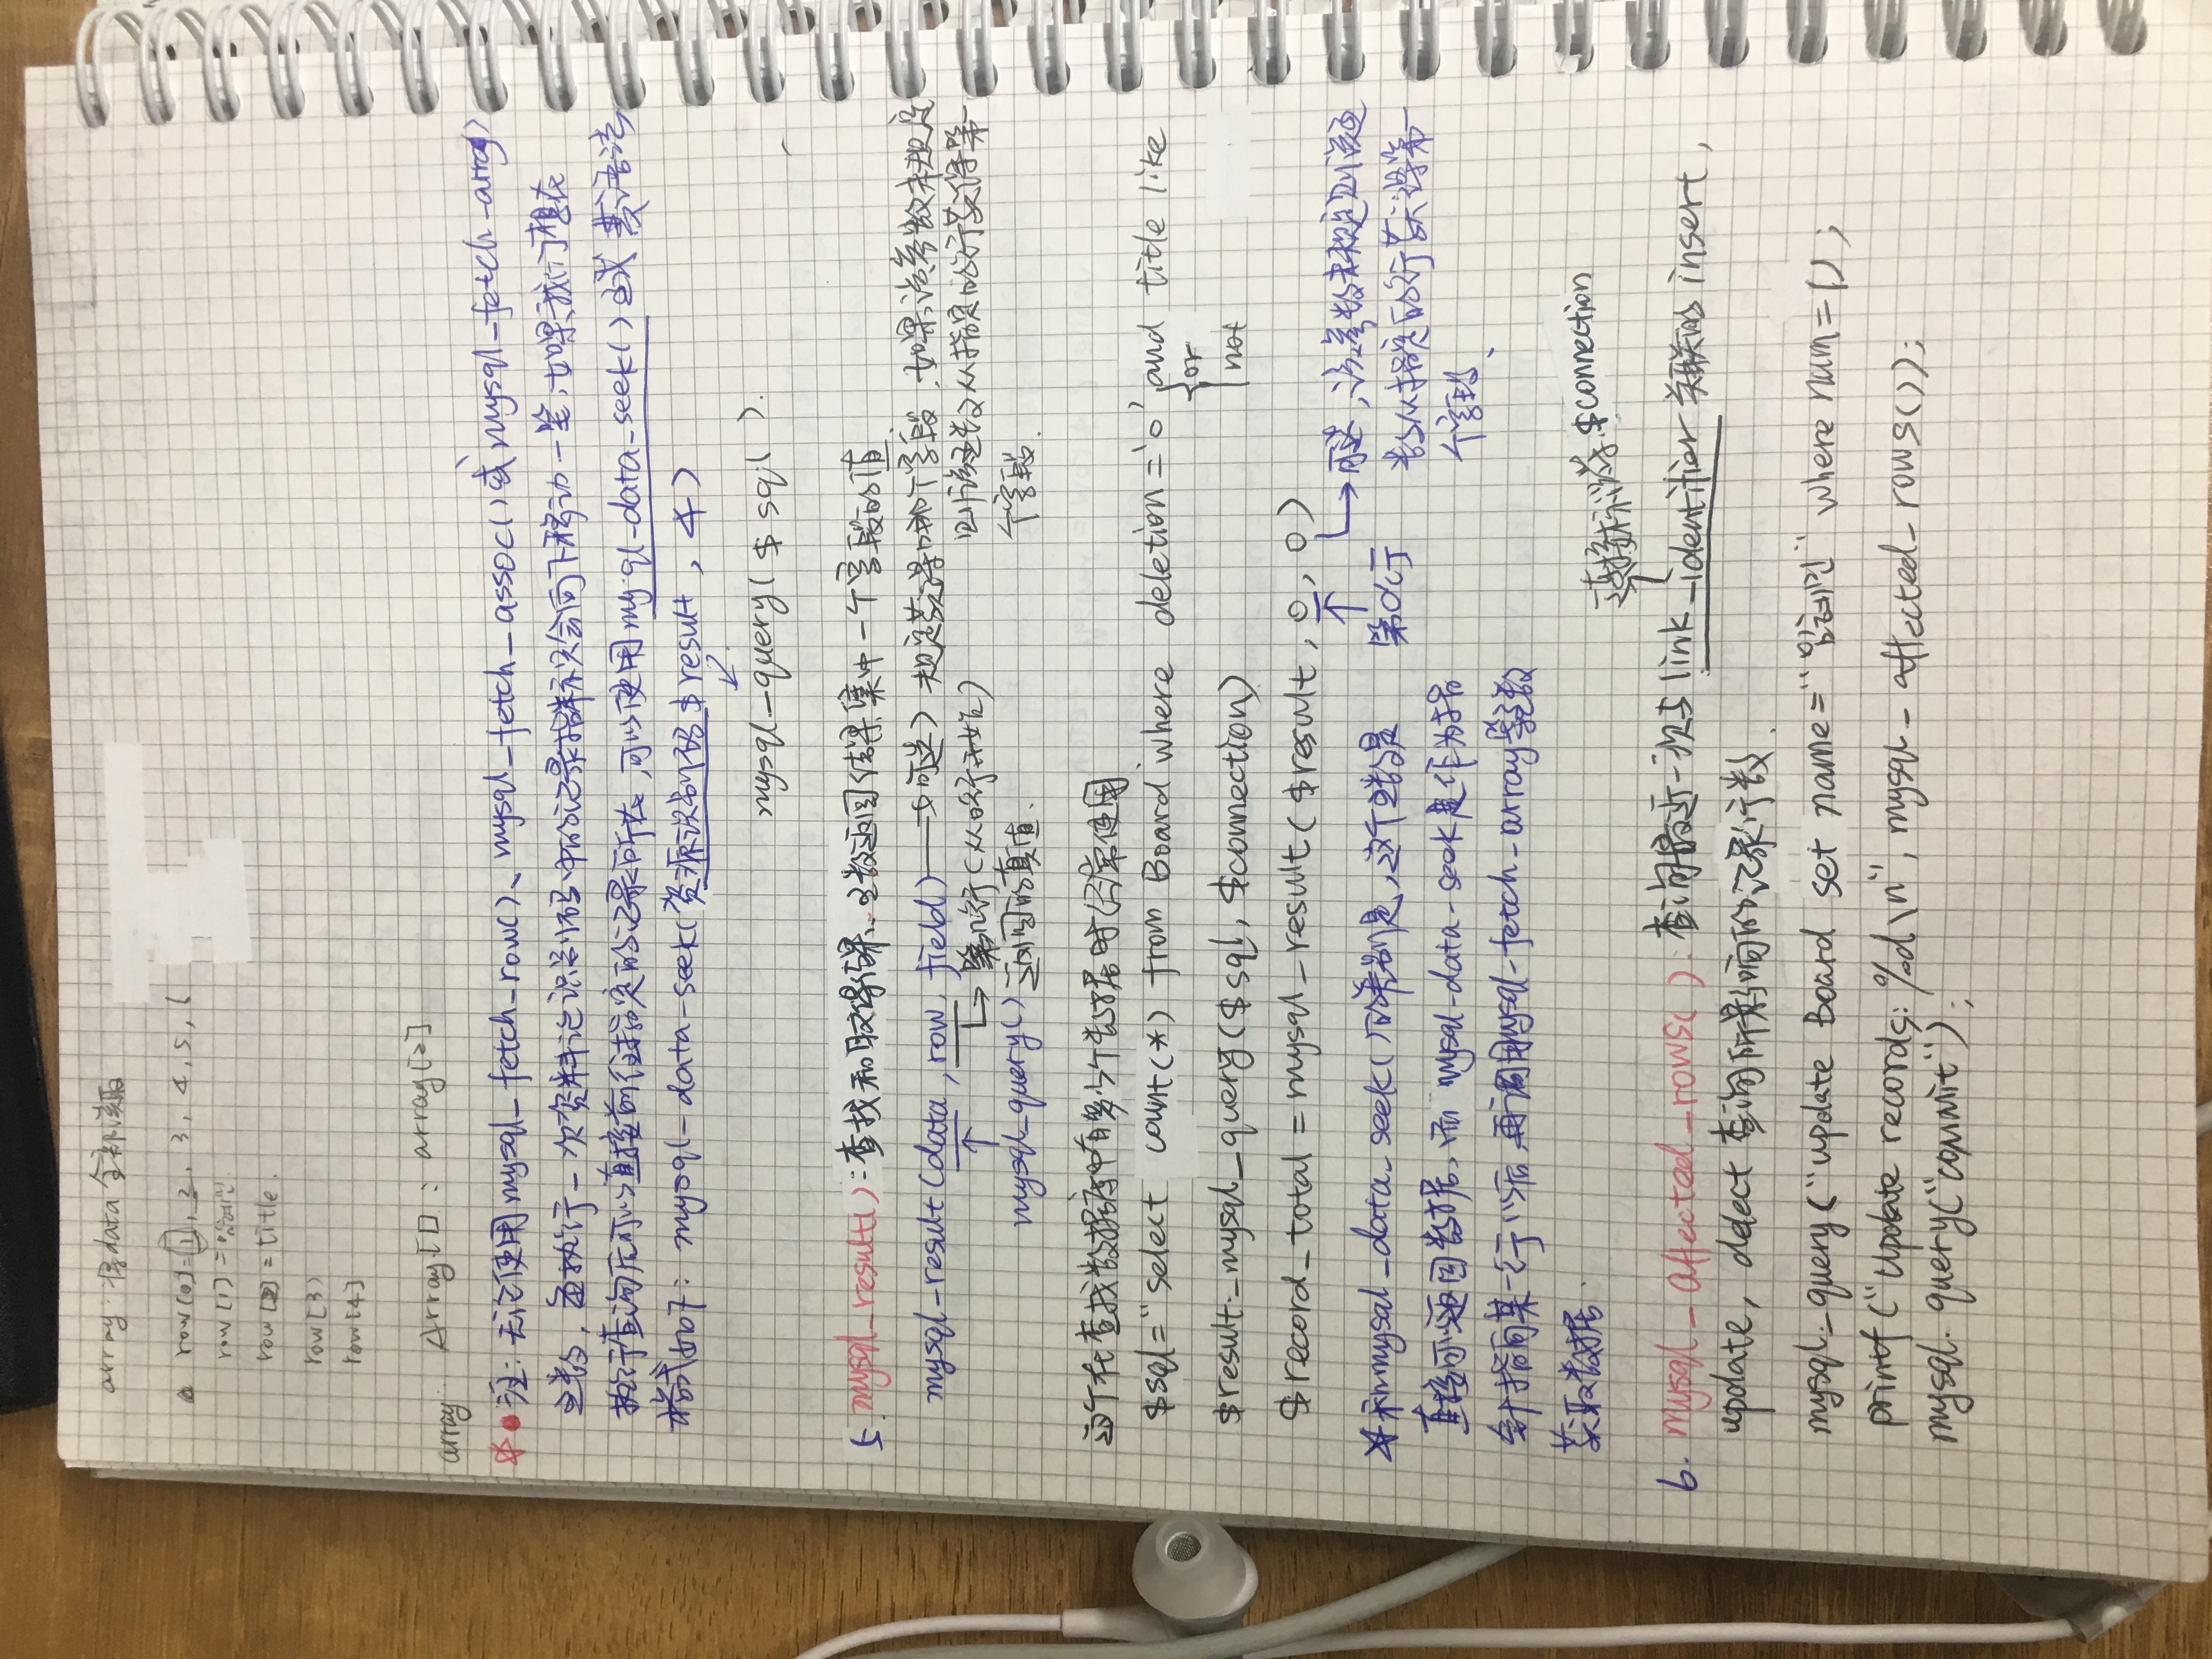 array: 将data全部读取
row[0]=1, 2, 3, 4, 5, 6
row[1]=임혜민
row[2]=title.
row[3]
row[4]
array Array[1]: array[2]
注: 无论使用mysql_fetch_row()、mysql_fetch_assoc()或mysql_fetch_array()
函数, 每执行一次资料 识别码中的记录指标只会向下移动一笔, 如果我们想在
执行查询后可以直接前往指定的记录所在, 可以使用mysql-data-seek() 其语法
格式如下: mysql-data-seek(资源识别码$result, 4)
mysql_query($sql).
5. mysql_result(): 查找和取得结果. 函数返回结果集中一个字段的值.
mysql-result(data, row, field)→可选) 规定获得哪个字段, 如果该参数未规定
→第几行(从0行开始) 则该函数从指定的行获得第一
mysql_query()返回的真值. 个字段.
这个在查找数据库中有多少个数据时经常使用
$sql="select count(*) from Board where deletion='0' and title like
or
$result=mysql_query($sql, $connection) not
$record_total = mysql_result($result, 0, 0)
→可选, 该参数未规定则该函
*和mysql_data_seek()的差别是, 这个函数是 第0行 数从指定的行获得第一
直接可以返回数据, 而mysql-data-seek是作为指 个字段.
针指向某一行以后, 再调用mysql-fetch-array等函数
获取数据.
连接标识符.$connection
6. mysql_affected_rows(): 查询最近一次与link_identifier关联的insert,
update, delect 查询所影响的记录行数.
mysql_query("update Board set name="임혜민" where num=1);
printf("Update records: %d\n", mysql_affected_rows());
mysql_query("commit");